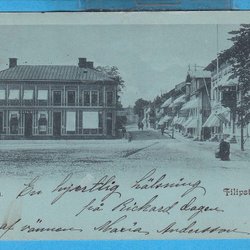 Filipst
En hjertlig hälsning
på Rickard dagen
af vännen Maria Andersson